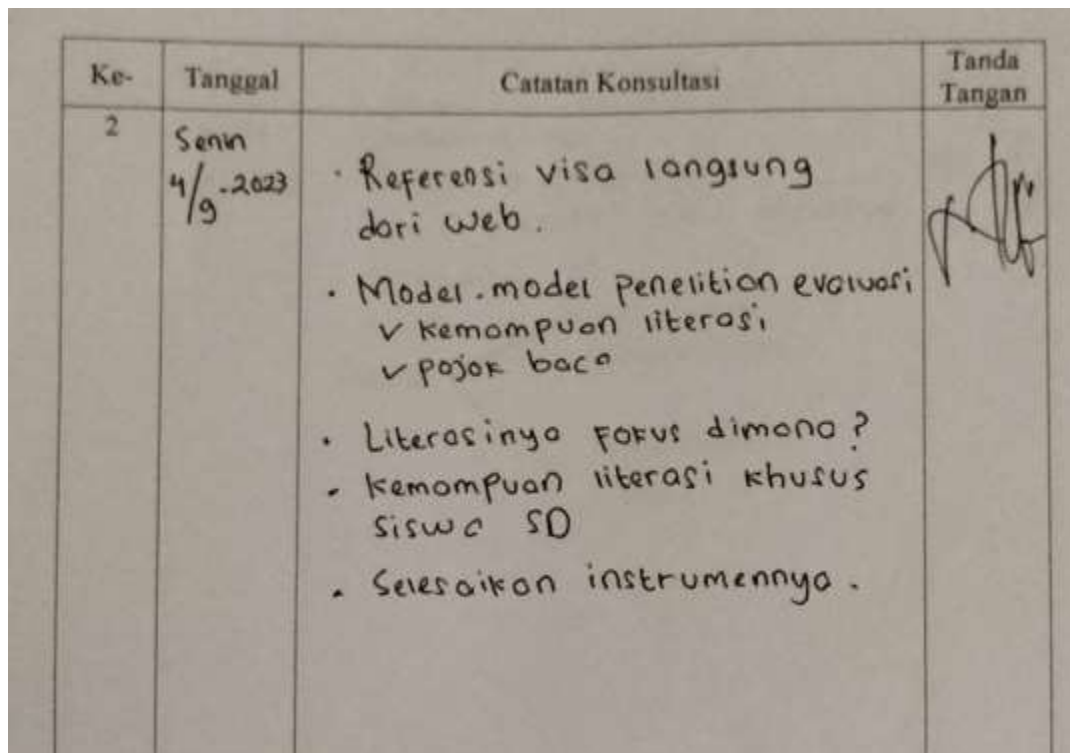 Ke- Tanggal Catatan Konsultasi Tanda Tangan
2
Senin
4/9-2023
· Referensi visa langsung
dari web.
· Model-model penelitian evaluasi
v kemampuan literasi
v pojok baca
· Literasinya Fokus dimana?
- kemampuan literasi khusus
siswa SD
· Selesaikan instrumennya.